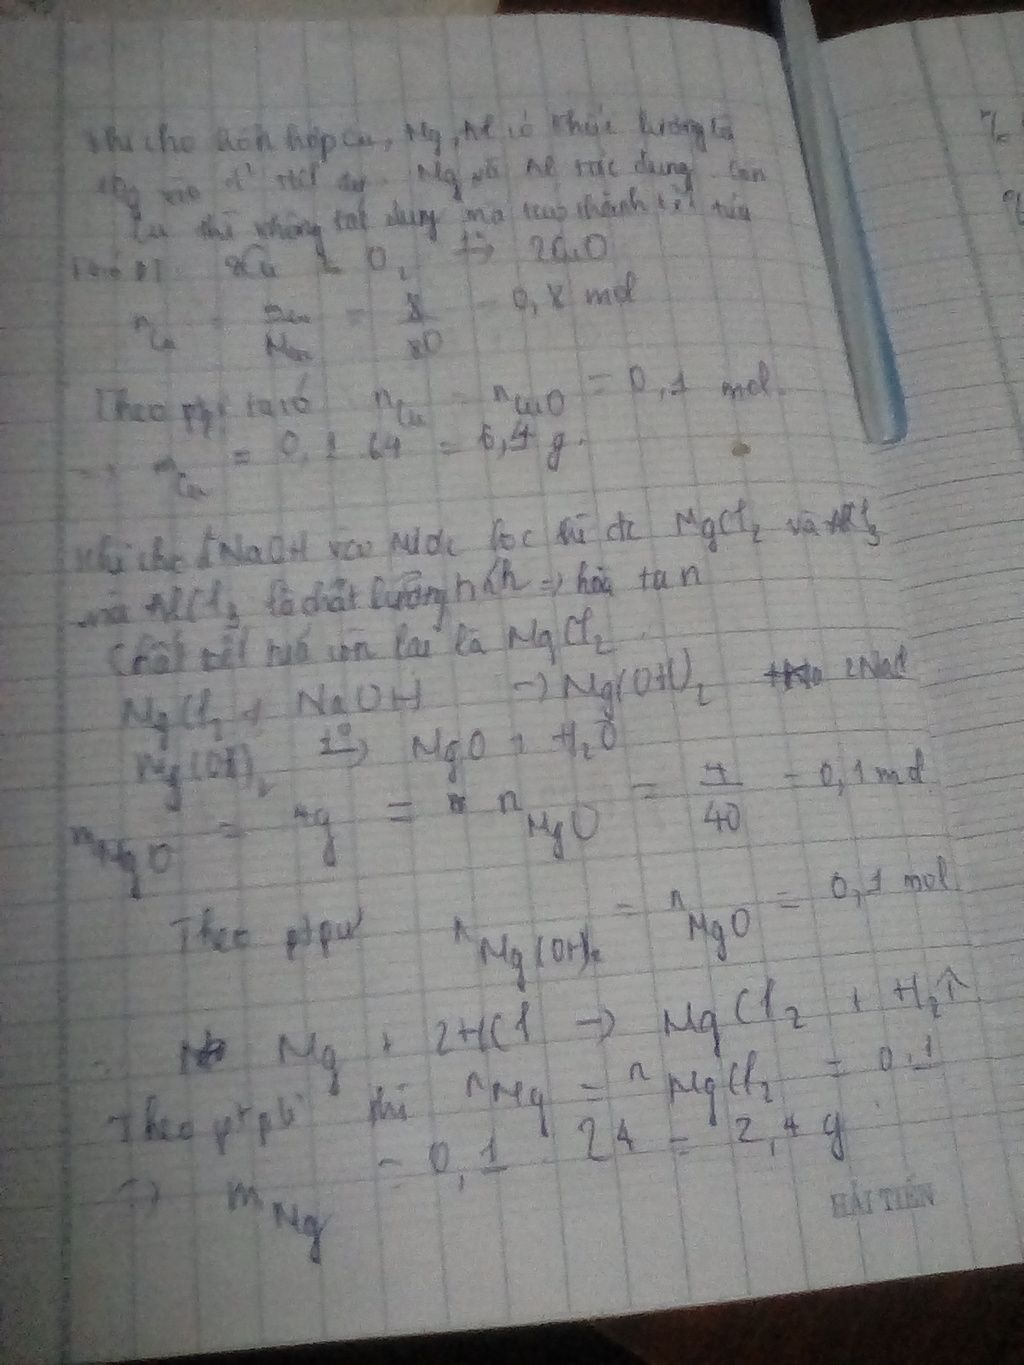 Khi cho hỗn hợp Cu, Mg, Al có khối lượng là
vào dd HCl dư. Mg và Al tác dụng còn
Cu thì không tác dụng mà tạo thành kết tủa
2Cu + O2 t°→ 2CuO
n Cu = = 8/80 = 0,8 mol
Theo pt ta có n Cu = n CuO = 0,1 mol.
=> m Cu = 0,1 64 = 6,4 g.
Khi cho NaOH vào nước lọc thì dc MgCl2 và AlCl3
mà AlCl3 là chất lưỡng tính => hòa tan
Chất kết tủa còn lại là MgCl2
MgCl2 + NaOH -> Mg(OH)2 2NaCl
Mg(OH)2 t°→ MgO + H2O
m MgO = 4g = n MgO = 4/40 = 0,1 mol
Theo ptpư n Mg(OH)2 = n MgO = 0,1 mol
Mg + 2HCl -> MgCl2 + H2↑
Theo ptpư thì n Mg = n MgCl2 = 0,1
=> m Mg = 0,1 24 = 2,4 g
HẢI TIẾN